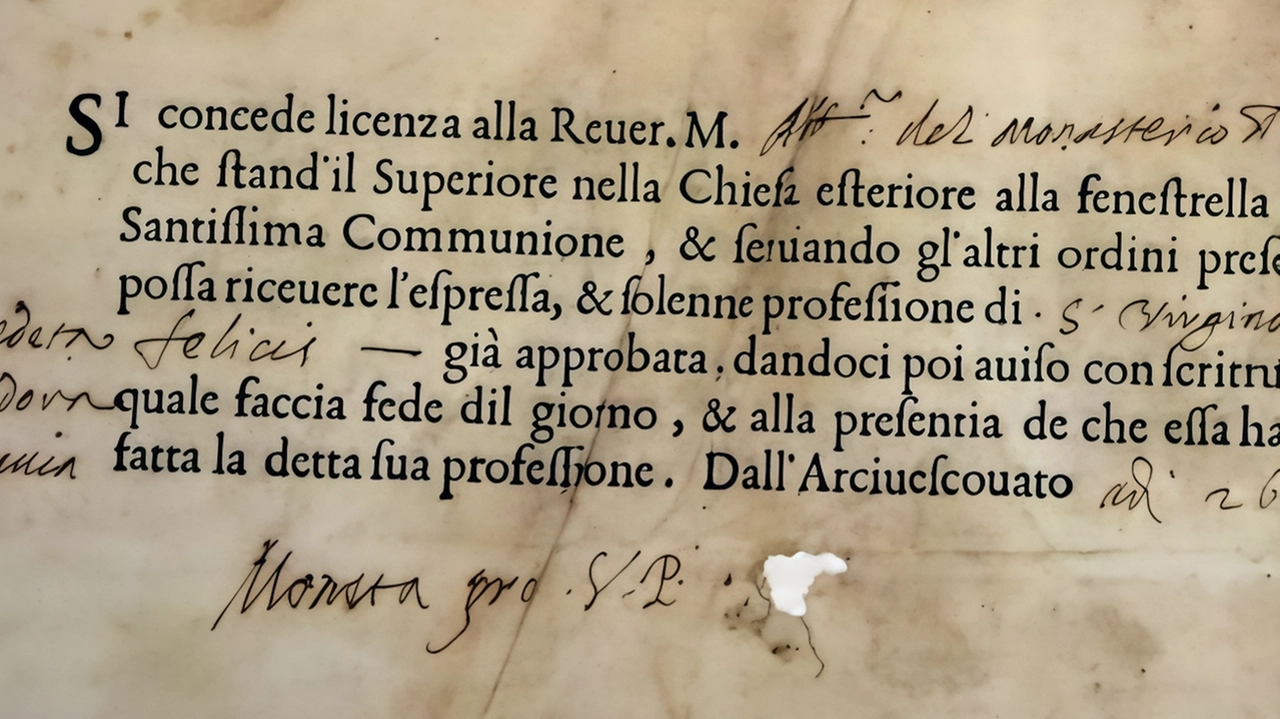 SI concede licenza alla Reuer. M. Att.ª del monasterio
che ſtand'il Superiore nella Chieſa eſteriore alla feneſtrella
Santiſſima Communione , & ſeruando gl'altri ordini preſc
poſſa riceuere l'eſpreſſa, & ſolenne profeſſione di . S
felicis — già approbata, dandoci poi auiſo con ſcrittu
quale faccia fede dil giorno , & alla preſentia de che eſſa ha
fatta la detta ſua profeſſione . Dall'Arciueſcouato adi 26
pro . V. P.